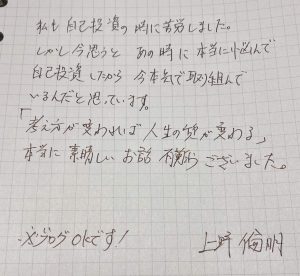 私も自己投資の時に苦労しました。
しかし今思うと あの時に本当に悩んで
自己投資したから 今本気で取り組んで
いるんだと思っています。
「考え方が変われば 人生の質が変わる」
本当に 素晴しい お話 有難う ございました。
※ブログOKです!
上野 倫明